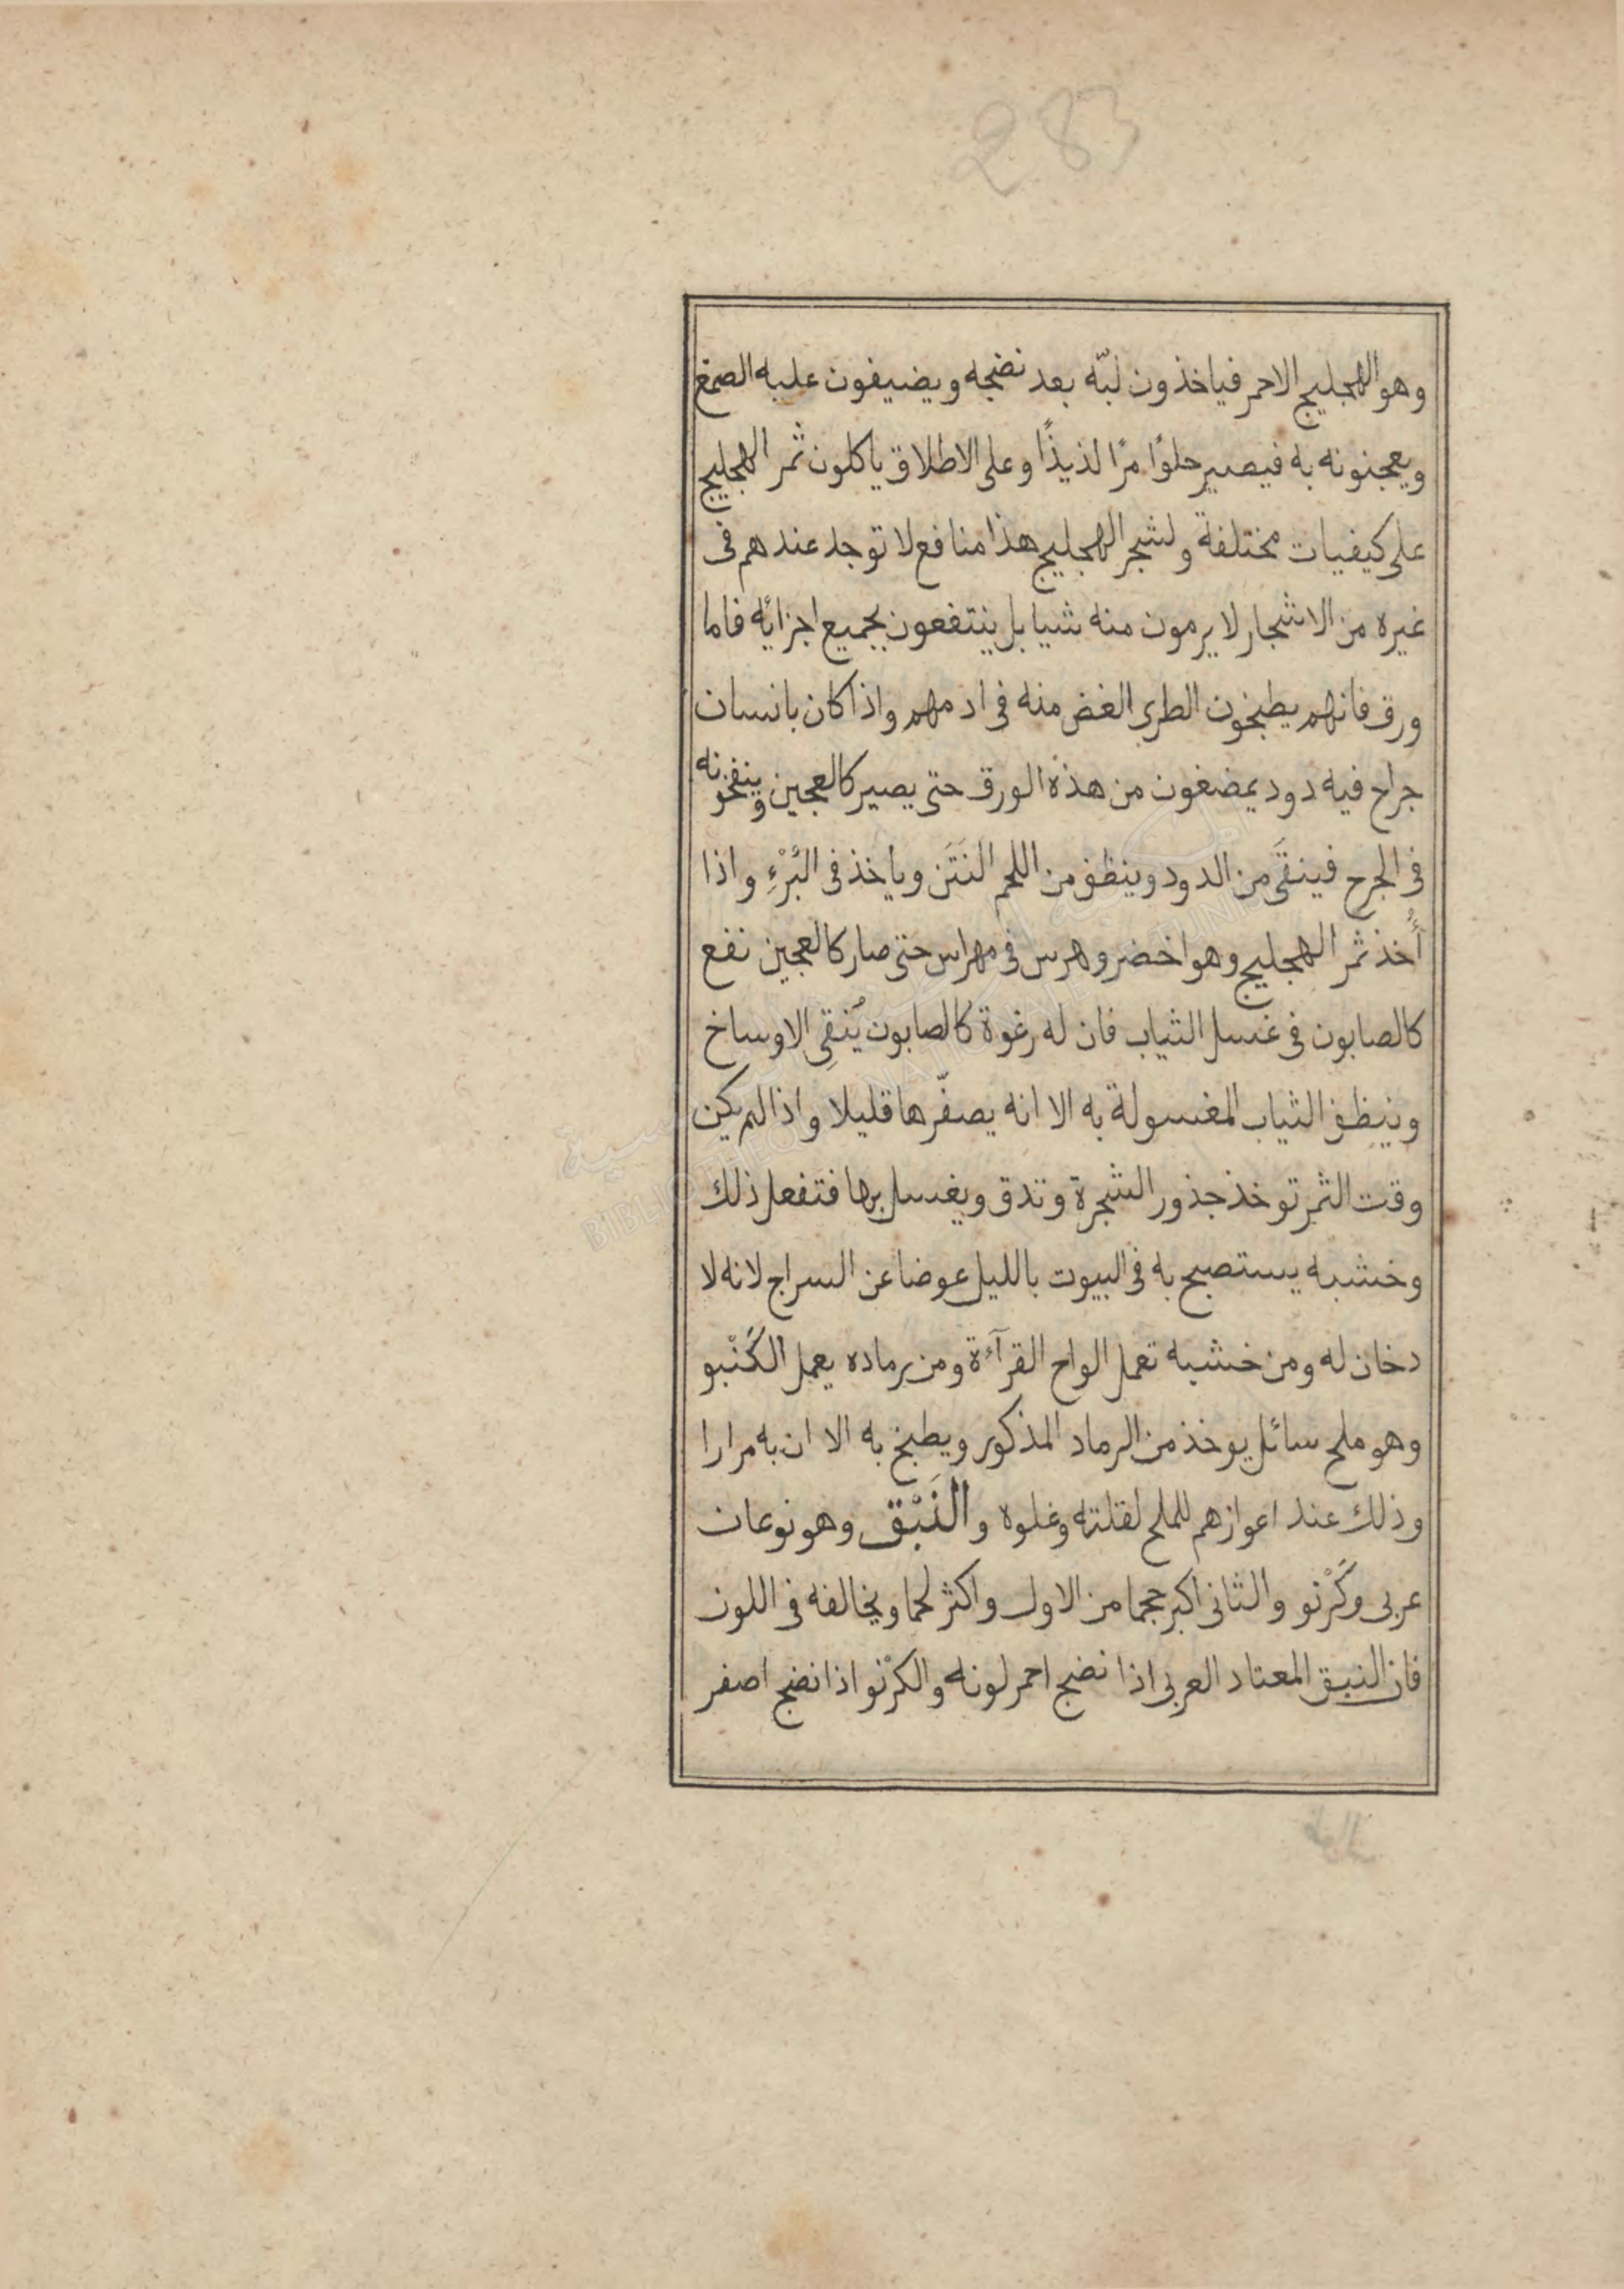 283
وهو الهجليج الاحمر فياخذون لبّه بعد نضجه ويضيفون عليه الصمغ
ويعجنونه به فيصير حلوًا مرًا لذيذًا وعلى الاطلاق ياكلون ثمر الهجليج
على كيفيات مختلفة ولشجر الهجليج هذا منافع لا توجد عندهم فى
غيره من الاشجار لا يرمون منه شيا بل ينتفعون بجميع اجزائه فاما
ورقه فانهم يطبخون الطرى الغض منه فى ادمهم واذا كان بانسان
جراح فيه دود يمضغون من هذه الورق حتى يصير كالعجين وينفخونه
فى الجرح فينقَى من الدود وينظف من اللحم النَتَن وياخذ فى البُرْءِ واذا
أُخذ ثمر الهجليج وهو اخضر وهرس فى مهراس حتى صار كالعجين نفع
كالصابون فى غسل الثياب فان له رغوة كالصابون يُنقِى الاوساخ
وينظف الثياب المغسولة به الا انه يصفّرها قليلا واذا لم يكن
وقت الثمر توخذ جذور الشجرة وتدق ويغسل بها فتفعل ذلك
وخشبه يستصبح به فى البيوت بالليل عوضا عن السراج لانه لا
دخان له ومن خشبه تعمل الواح القرآءة ومن رماده يعمل الكَنْبو
وهو ملح سائل يوخذ من الرماد المذكور ويطبخ به الا ان به مرارا
وذلك عند اعوازهم للملح لقلته وغلوه والنَبْق وهو نوعان
عربى وكَرْنو والثانى اكبر حجما من الاول واكثر لحما ويخالفه فى اللون
فان النبق المعتاد العربى اذا نضج احمر لونه والكرْنو اذا نضج اصفر
BIBLIOTHEQUE NATIONALE TUNIS